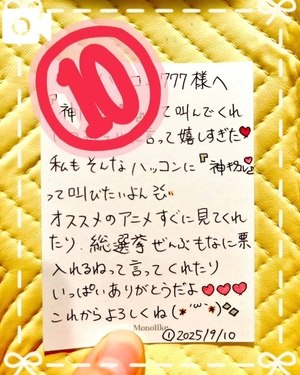 ⑩
777様へ
『神 って叫んでくれ
言って嬉しすぎた♥
私もそんなハッコンに『神
って叫びたいよん
オススメのアニメすぐに見てくれ
たり、総選挙ぜんぶもなに票
入れるねって言ってくれたり
いっぱいありがとうだよ♥♥♥
これからよろしくね(*'ω'*)
Monolike
①2025/9/10